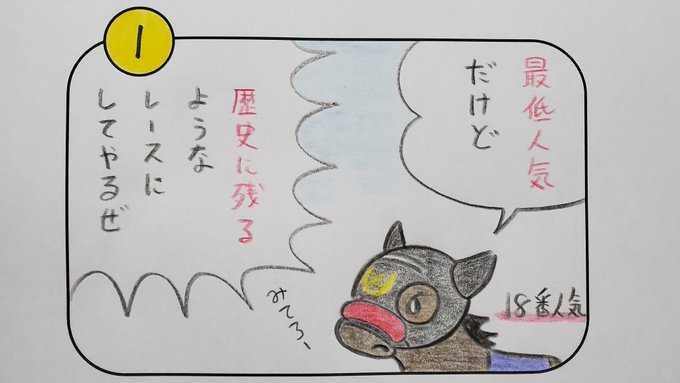 1
最低人気
だけど
歴史に残る
ような
レースに
してやるぜ
みてろ、
18番人気